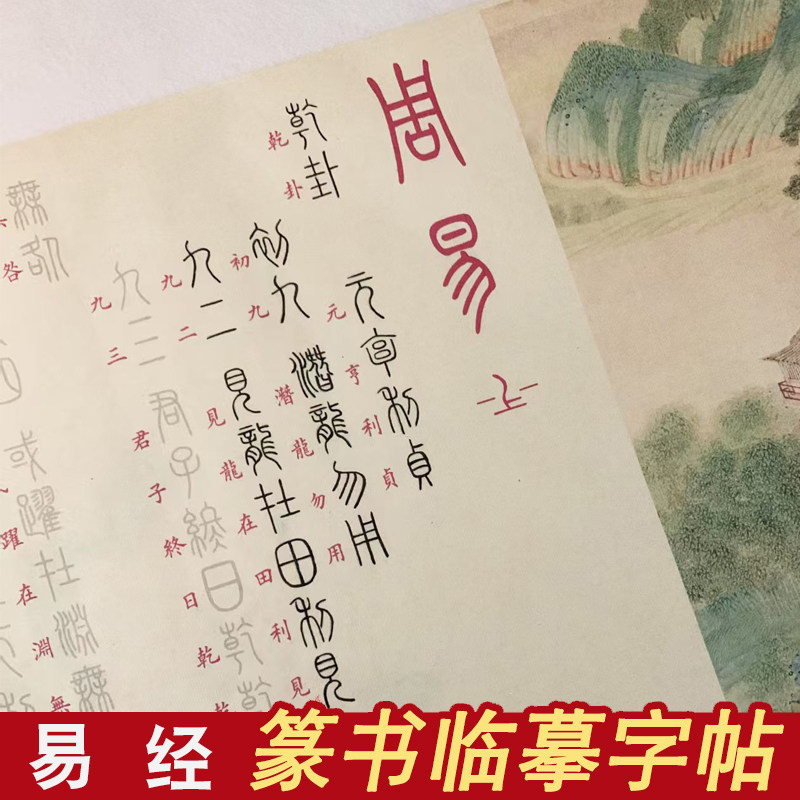 周易
乾卦
乾卦
元亨利貞
元亨利貞
初九潛龍勿用
初九潛龍勿用
九二見龍在田利見
九二見龍在田利見
九三君子終日乾乾
九三君子終日乾
無咎
咎
或躍在淵無
躍在淵無
易经
篆书临摹字帖